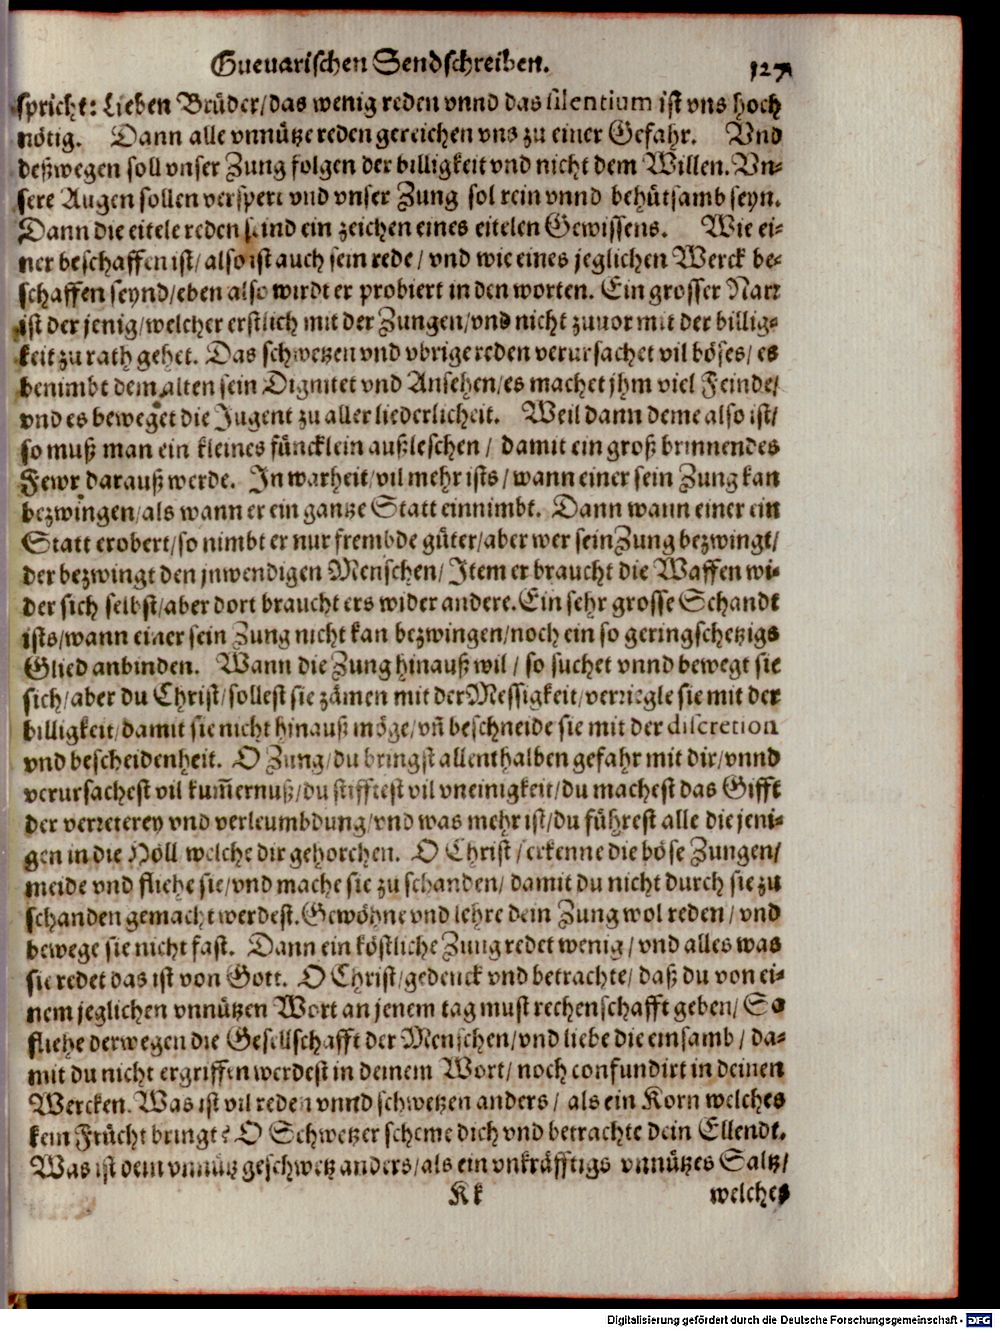 Guevarischen Sendschreiben. 127
spricht: Lieben Brüder/das wenig reden vnnd das silentium ist vns hoch
nötig. Dann alle vnnütze reden gereichen vns zu einer Gefahr. Vnd
deßwegen soll vnser Zung folgen der billigkeit vnd nicht dem Willen. Vn-
sere Augen sollen verspert vnd vnser Zung sol rein vnnd behütsamb seyn.
Dann die eitele reden seind ein zeichen eines eitelen Gewissens. Wie ei-
ner beschaffen ist/also ist auch sein rede/ vnd wie eines jeglichen Werck be-
schaffen seynd/eben also wirdt er probiert in den worten. Ein grosser Narr
ist der jenig/welcher erstlich mit der Zungen/vnd nicht zuuor mit der billig-
keit zu rath gehet. Das schwetzen vnd vbrige reden verursachet vil böses/ es
benimbt dem alten sein Dignitet vnd Ansehen/es machet jhm viel Feinde/
vnd es beweget die Jugent zu aller liederlicheit. Weil dann deme also ist/
so muß man ein kleines füncklein außleschen/ damit ein groß brinnendes
Fewr darauß werde. In warheit/vil mehr ists/ wann einer sein Zung kan
bezwingen/als wann er ein gantze Statt einnimbt. Dann wann einer ein
Statt erobert/so nimbt er nur frembde güter/aber wer sein Zung bezwingt/
der bezwingt den jnwendigen Menschen/ Item er braucht die Waffen wi-
der sich selbst/aber dort braucht ers wider andere. Ein sehr grosse Schandt
ists/wann einer sein Zung nicht kan bezwingen/noch ein so geringschetzigs
Glied anbinden. Wann die Zung hinauß wil/ so suchet vnnd bewegt sie
sich/aber du Christ/sollest sie zämen mit der Messigkeit/verriegle sie mit der
billigkeit/damit sie nicht hinauß möge/vñ beschneide sie mit der discretion
vnd bescheidenheit. O Zung/du bringst allenthalben gefahr mit dir/vnnd
verursachest vil kum̃ernuß/du stifftest vil vneinigkeit/du machest das Gifft
der verreterey vnd verleumbdung/vnd was mehr ist/du führest alle die jeni-
gen in die Höll welche dir gehorchen. O Christ/erkenne die böse Zungen/
meide vnd fliehe sie/vnd mache sie zu schanden/ damit du nicht durch sie zu
schanden gemacht werdest. Gewöhne vnd lehre dein Zung wol reden/ vnd
bewege sie nicht fast. Dann ein köstliche Zung redet wenig/ vnd alles was
sie redet das ist von Gott. O Christ/gedenck vnd betrachte/ daß du von ei-
nem jeglichen vnnützen Wort an jenem tag must rechenschafft geben/ So
fliehe derwegen die Gesellschafft der Menschen/vnd liebe die einsamb/ da-
mit du nicht ergriffen werdest in deinem Wort/ noch confundirt in deinen
Wercken. Was ist vil reden vnnd schwetzen anders/ als ein Korn welches
kein Frücht bringt? O Schwetzer scheme dich vnd betrachte dein Ellendt.
Was ist dein vnnütz geschwetz anders/als ein vnkräfftigs vnnützes Saltz/
Kk welches
Digitalisierung gefördert durch die Deutsche Forschungsgemeinschaft - DFG